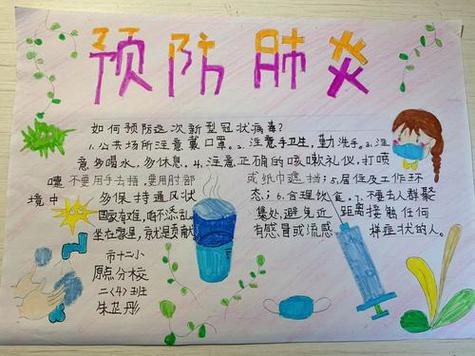 预防肺炎
如何预防这次新型冠状病毒?
1.公共场所注意戴口罩。2.注意手卫生,勤洗手。3.注
意多喝水,多休息。4.注意正确的咳嗽礼仪,打喷
嚏不要用手去捂,要用肘部 或纸巾遮挡;5.居住及工作环
境中 多保持通风状 态;6.合理饮食。7.不要去人群聚
国家有难,咱不添乱 集处,避免近 距离接触任何
坐在家里,就是贡献 有感冒或流感 样症状的人。
市十二小
原点分校
二(4)班
朱芷彤